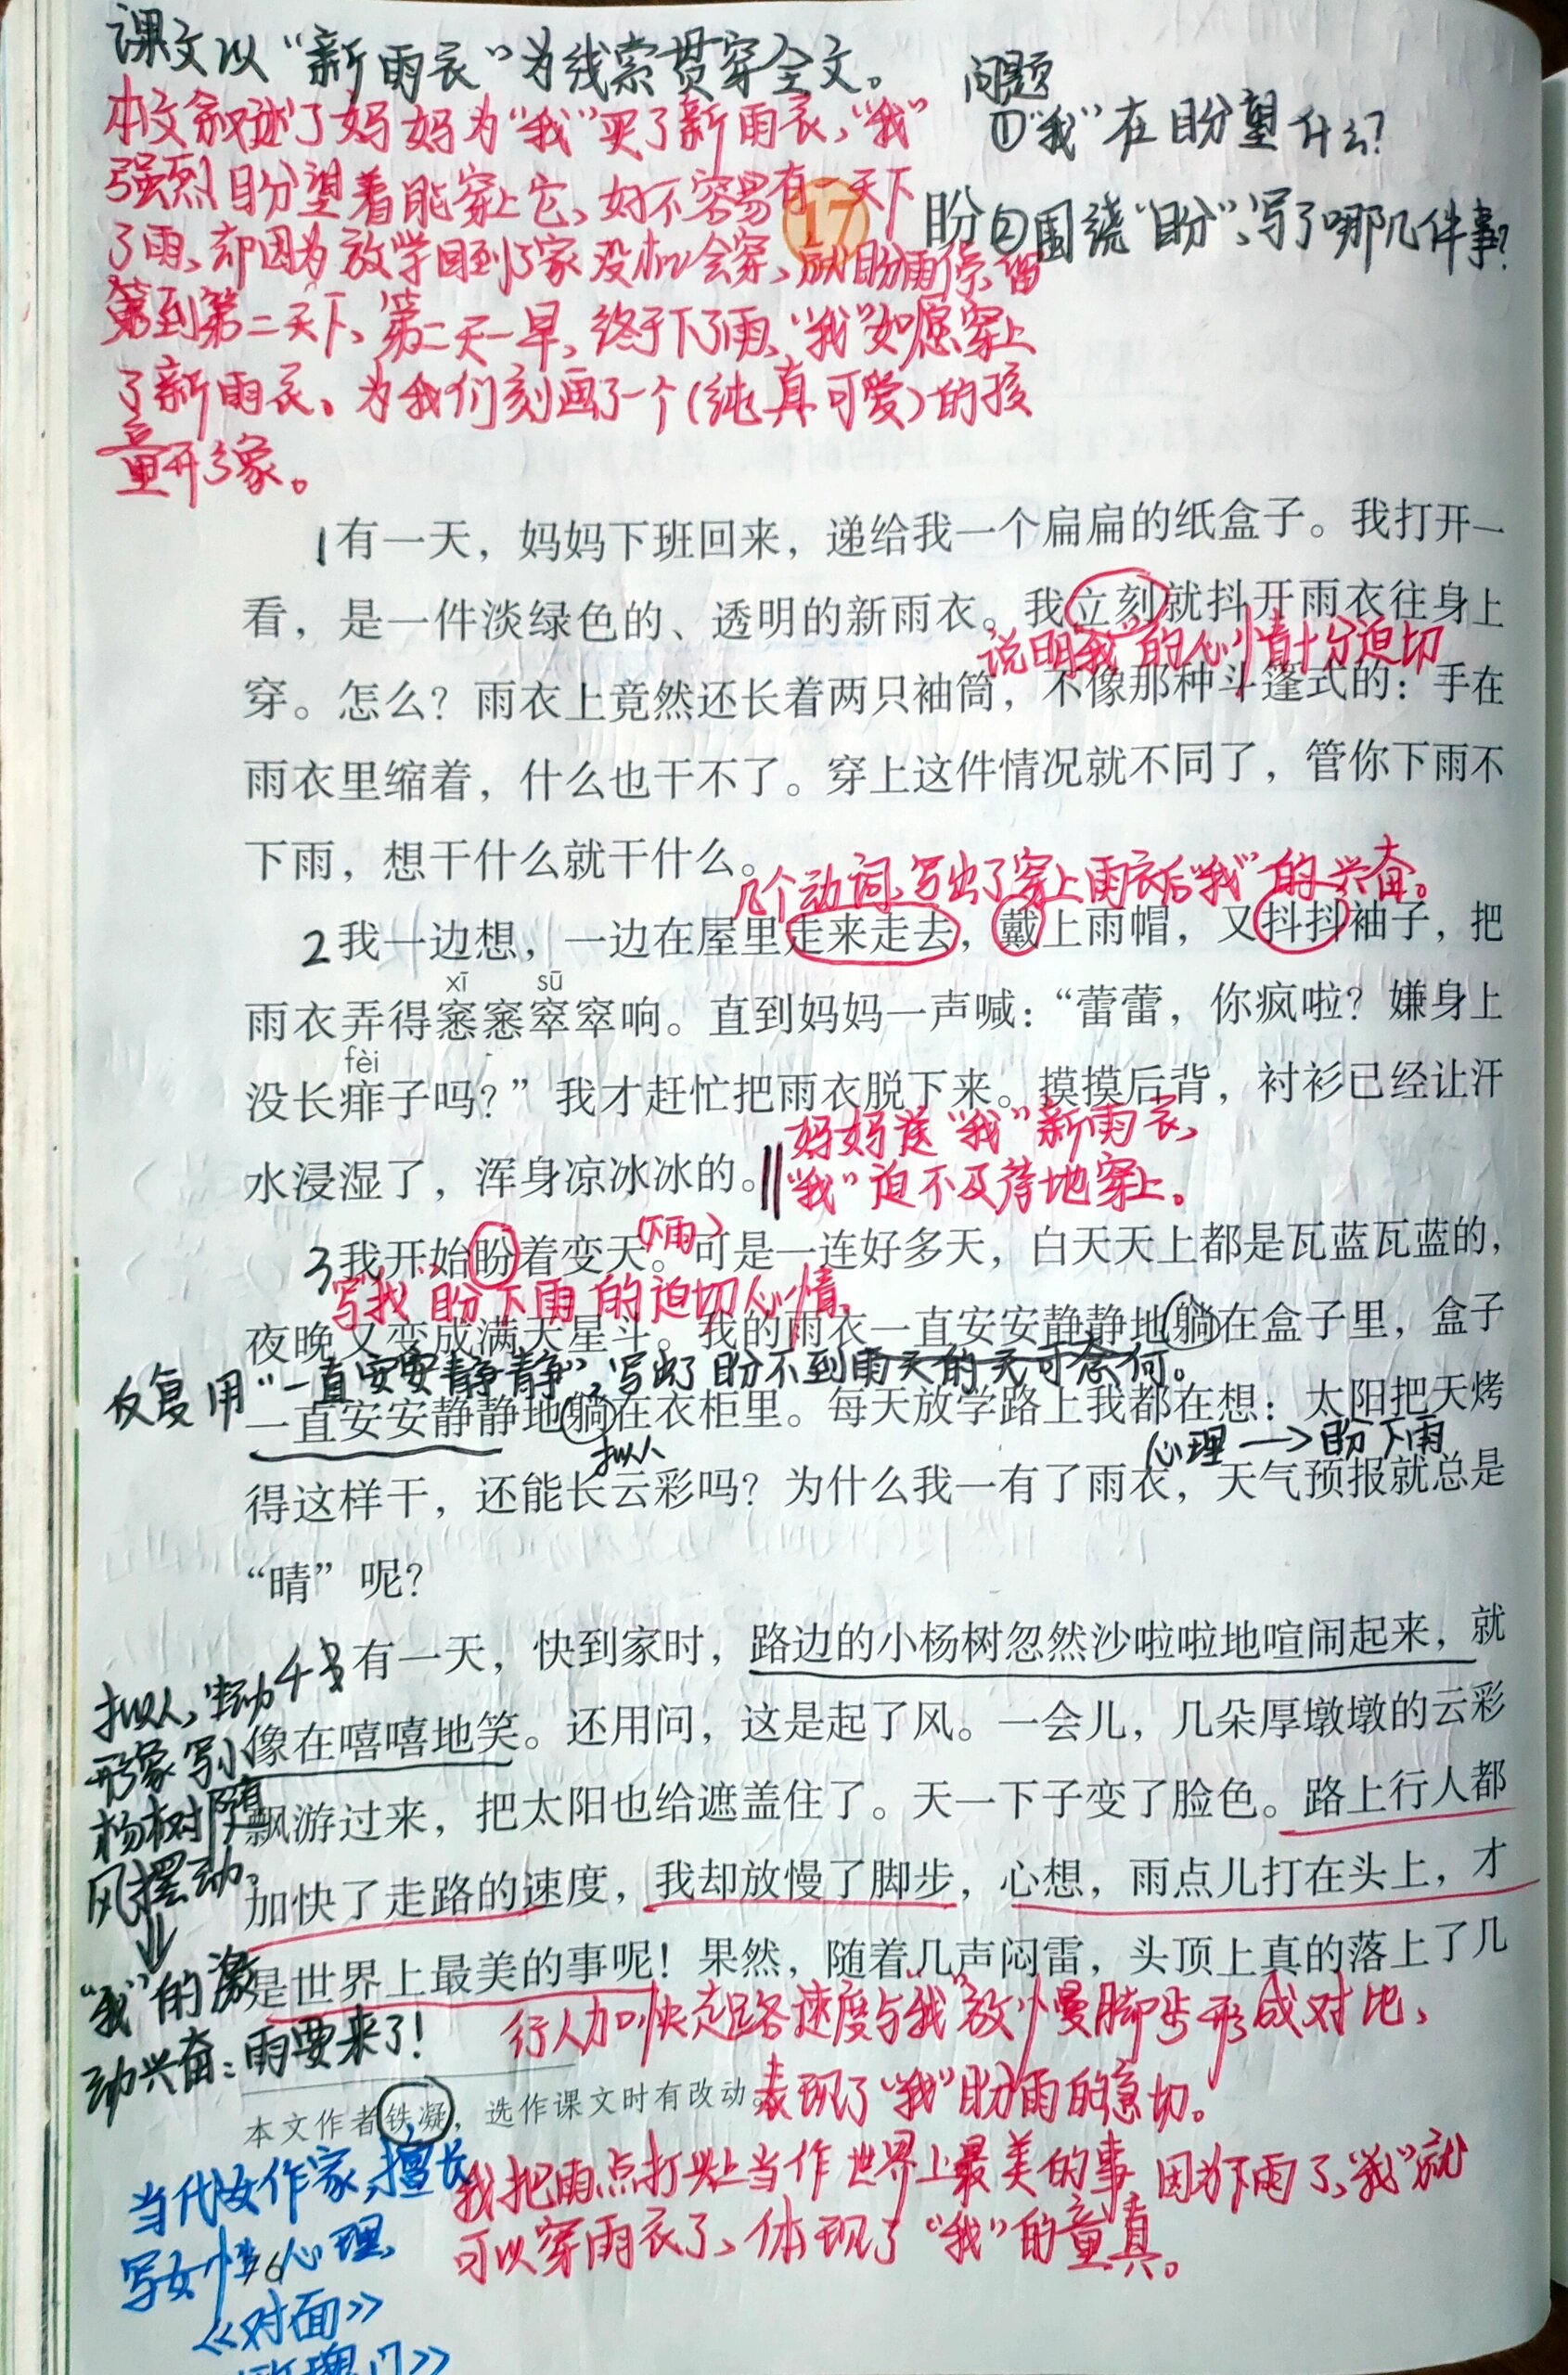 课文以“新雨衣”为线索贯穿全文。
本文叙述了妈妈为“我”买了新雨衣,“我”
强烈盼望着能穿上它,好不容易有一天下
了雨,却因为放学回到了家没机会穿,就盼雨停,留
到第二天下,第二天一早,终于下了雨,“我”如愿穿上
了新雨衣。为我们刻画了一个(纯真可爱)的孩
童形象。
问题
①“我”在盼望什么?
②围绕“盼”,写了哪几件事?
17 盼
1有一天，妈妈下班回来，递给我一个扁扁的纸盒子。我打开一
看，是一件淡绿色的、透明的新雨衣。我立刻就抖开雨衣往身上
说明“我”的心情十分迫切
穿。怎么？雨衣上竟然还长着两只袖筒，不像那种斗篷式的：手在
雨衣里缩着，什么也干不了。穿上这件情况就不同了，管你下雨不
下雨，想干什么就干什么。
几个动词,写出了穿上雨衣后“我”的兴奋。
2我一边想，一边在屋里走来走去，戴上雨帽，又抖抖袖子，把
xī sū
雨衣弄得窸窸窣窣响。直到妈妈一声喊：“蕾蕾，你疯啦？嫌身上
fèi
没长痱子吗？”我才赶忙把雨衣脱下来。摸摸后背，衬衫已经让汗
水浸湿了，浑身凉冰冰的。
妈妈送“我”新雨衣,
“我”迫不及待地穿上。
(下雨)
3我开始盼着变天。可是一连好多天，白天天上都是瓦蓝瓦蓝的，
写我盼下雨的迫切心情,
夜晚又变成满天星斗。我的雨衣一直安安静静地躺在盒子里，盒子
反复用“一直安安静静”,写出了盼不到雨天的无可奈何。
一直安安静静地躺在衣柜里。每天放学路上我都在想：太阳把天烤
拟人
心理→盼下雨
得这样干，还能长云彩吗？为什么我一有了雨衣，天气预报就总是
“晴”呢？
4有一天，快到家时，路边的小杨树忽然沙啦啦地喧闹起来，就
像在嘻嘻地笑。还用问，这是起了风。一会儿，几朵厚墩墩的云彩
飘游过来，把太阳也给遮盖住了。天一下子变了脸色。路上行人都
加快了走路的速度，我却放慢了脚步，心想，雨点儿打在头上，才
是世界上最美的事呢！果然，随着几声闷雷，头顶上真的落上了几
拟人,生动
形象写小
杨树随
风摆动。
“我”的激
动兴奋:雨要来了!
行人加快走路速度与“我”放慢脚步形成对比,
表现了“我”盼雨的急切。
本文作者铁凝，选作课文时有改动。
我把雨点打头上当作世界上最美的事,因为下雨了,“我”就
可以穿雨衣了,体现了“我”的童真。
当代女作家,擅长
写女性心理,
《对面》
玫瑰门》